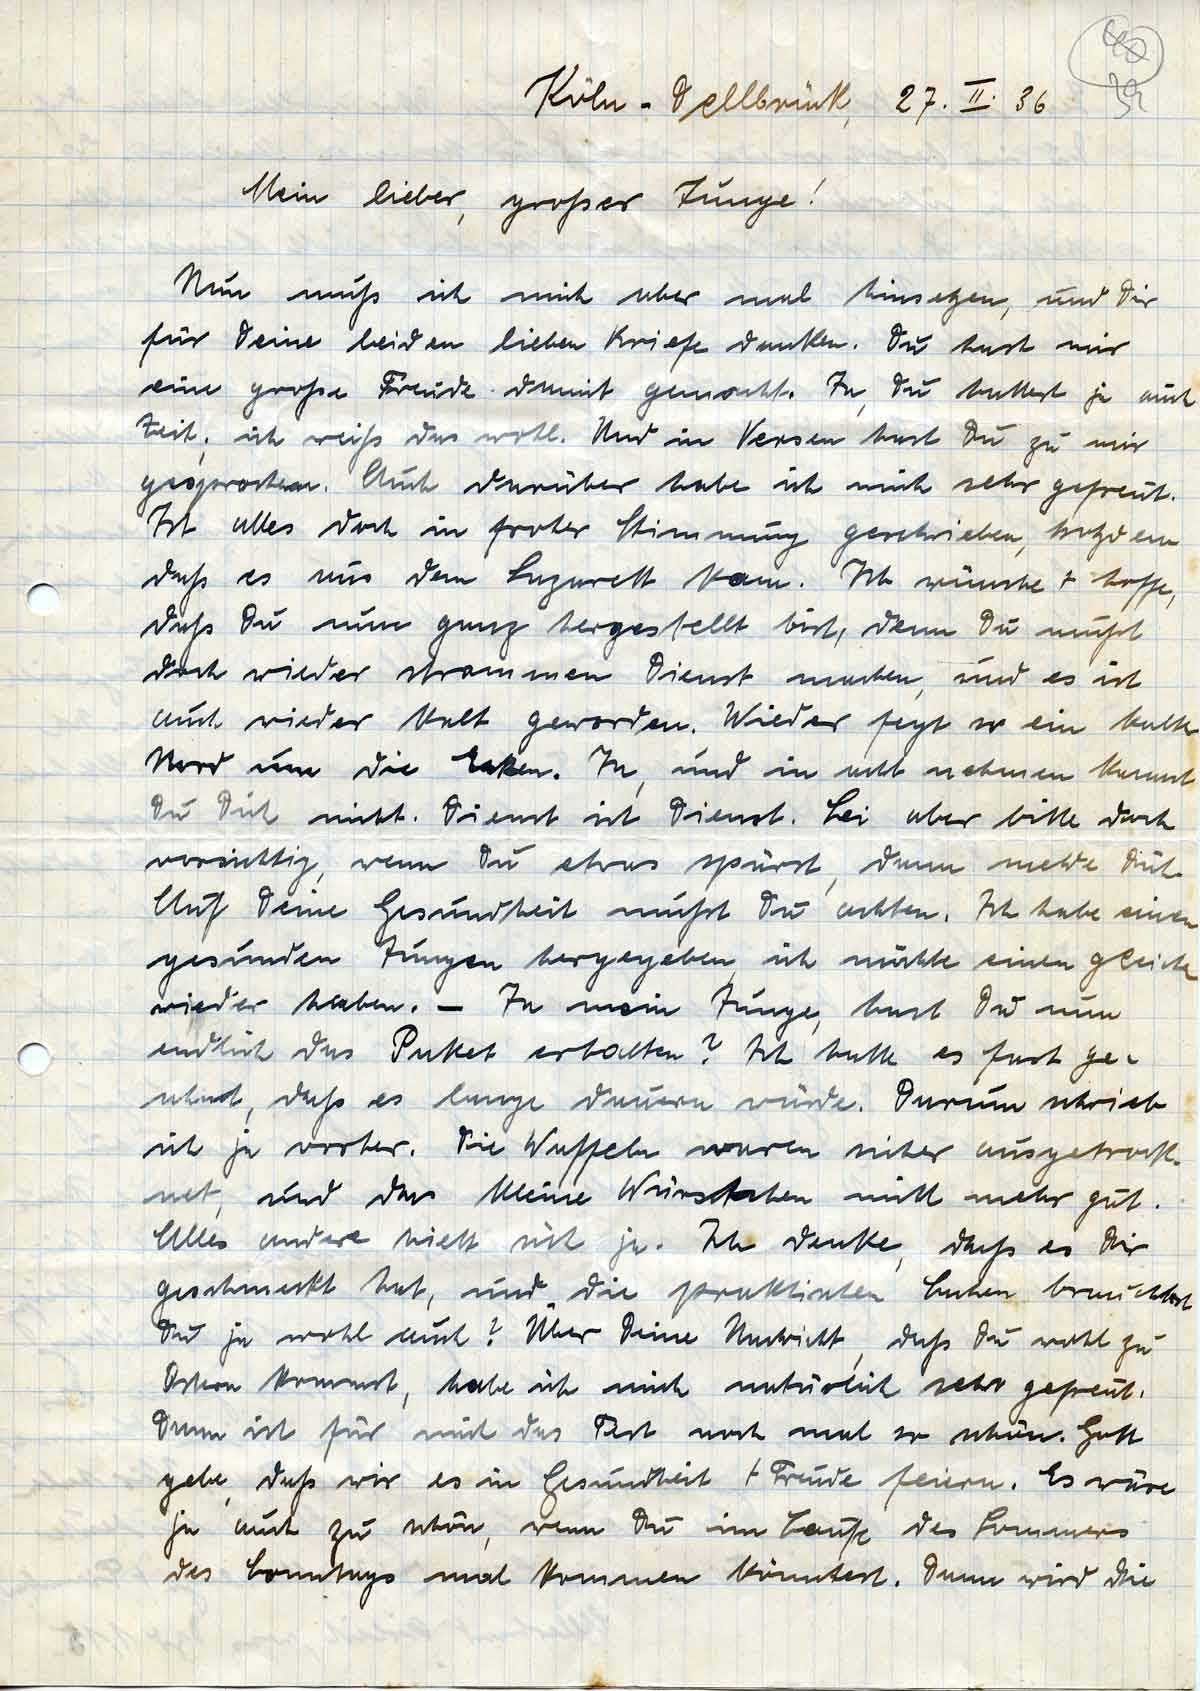 40
39
Köln-Dellbrück, 27. II. 36
Mein lieber, großer Junge!
Nun muß ich mich aber mal hinsetzen, und Dir
für Deine beiden lieben Briefe danken. Du hast mir
eine große Freude damit gemacht. Ja, Du hattest ja auch
Zeit, ich weiß das wohl. Und in Versen hast Du zu mir
gesprochen. Auch darüber habe ich mich sehr gefreut.
Ist alles doch in froher Stimmung geschrieben, trotzdem
daß es aus dem Lazarett kam. Ich wünsche + hoffe,
daß Du nun ganz hergestellt bist, denn Du mußt
doch wieder strammen Dienst machen, und es ist
auch wieder kalt geworden. Wieder fegt so ein kalter
Nord um die Ecken. Ja, und in acht nehmen kannst
Du Dich nicht. Dienst ist Dienst. Sei aber bitte doch
vorsichtig, wenn Du etwas spürst, dann melde Dich.
Auf Deine Gesundheit mußt Du achten. Ich habe einen
gesunden Jungen hergegeben, ich möchte einen gleichen
wieder haben. – Ja mein Junge, hast Du nun
endlich das Paket erhalten? Ich hatte es fast ge-
ahnt, daß es lange dauern würde. Darum schrieb
ich ja vorher. Die Waffeln waren sicher ausgetrock-
net, und das kleine Würstchen nicht mehr gut.
Alles andere hielt sich ja. Ich denke, daß es Dir
geschmeckt hat, und die praktischen Sachen brauchtest
Du ja wohl auch? Über Deine Nachricht, daß Du wohl zu
Ostern kommst, habe ich mich natürlich sehr gefreut.
Dann ist für mich das Fest noch mal so schön. Gott
gebe, daß wir es in Gesundheit + Freude feiern. Es wäre
ja auch zu schön, wenn Du im Laufe des Sommers
des Sonntags mal kommen könntest. Dann wird die